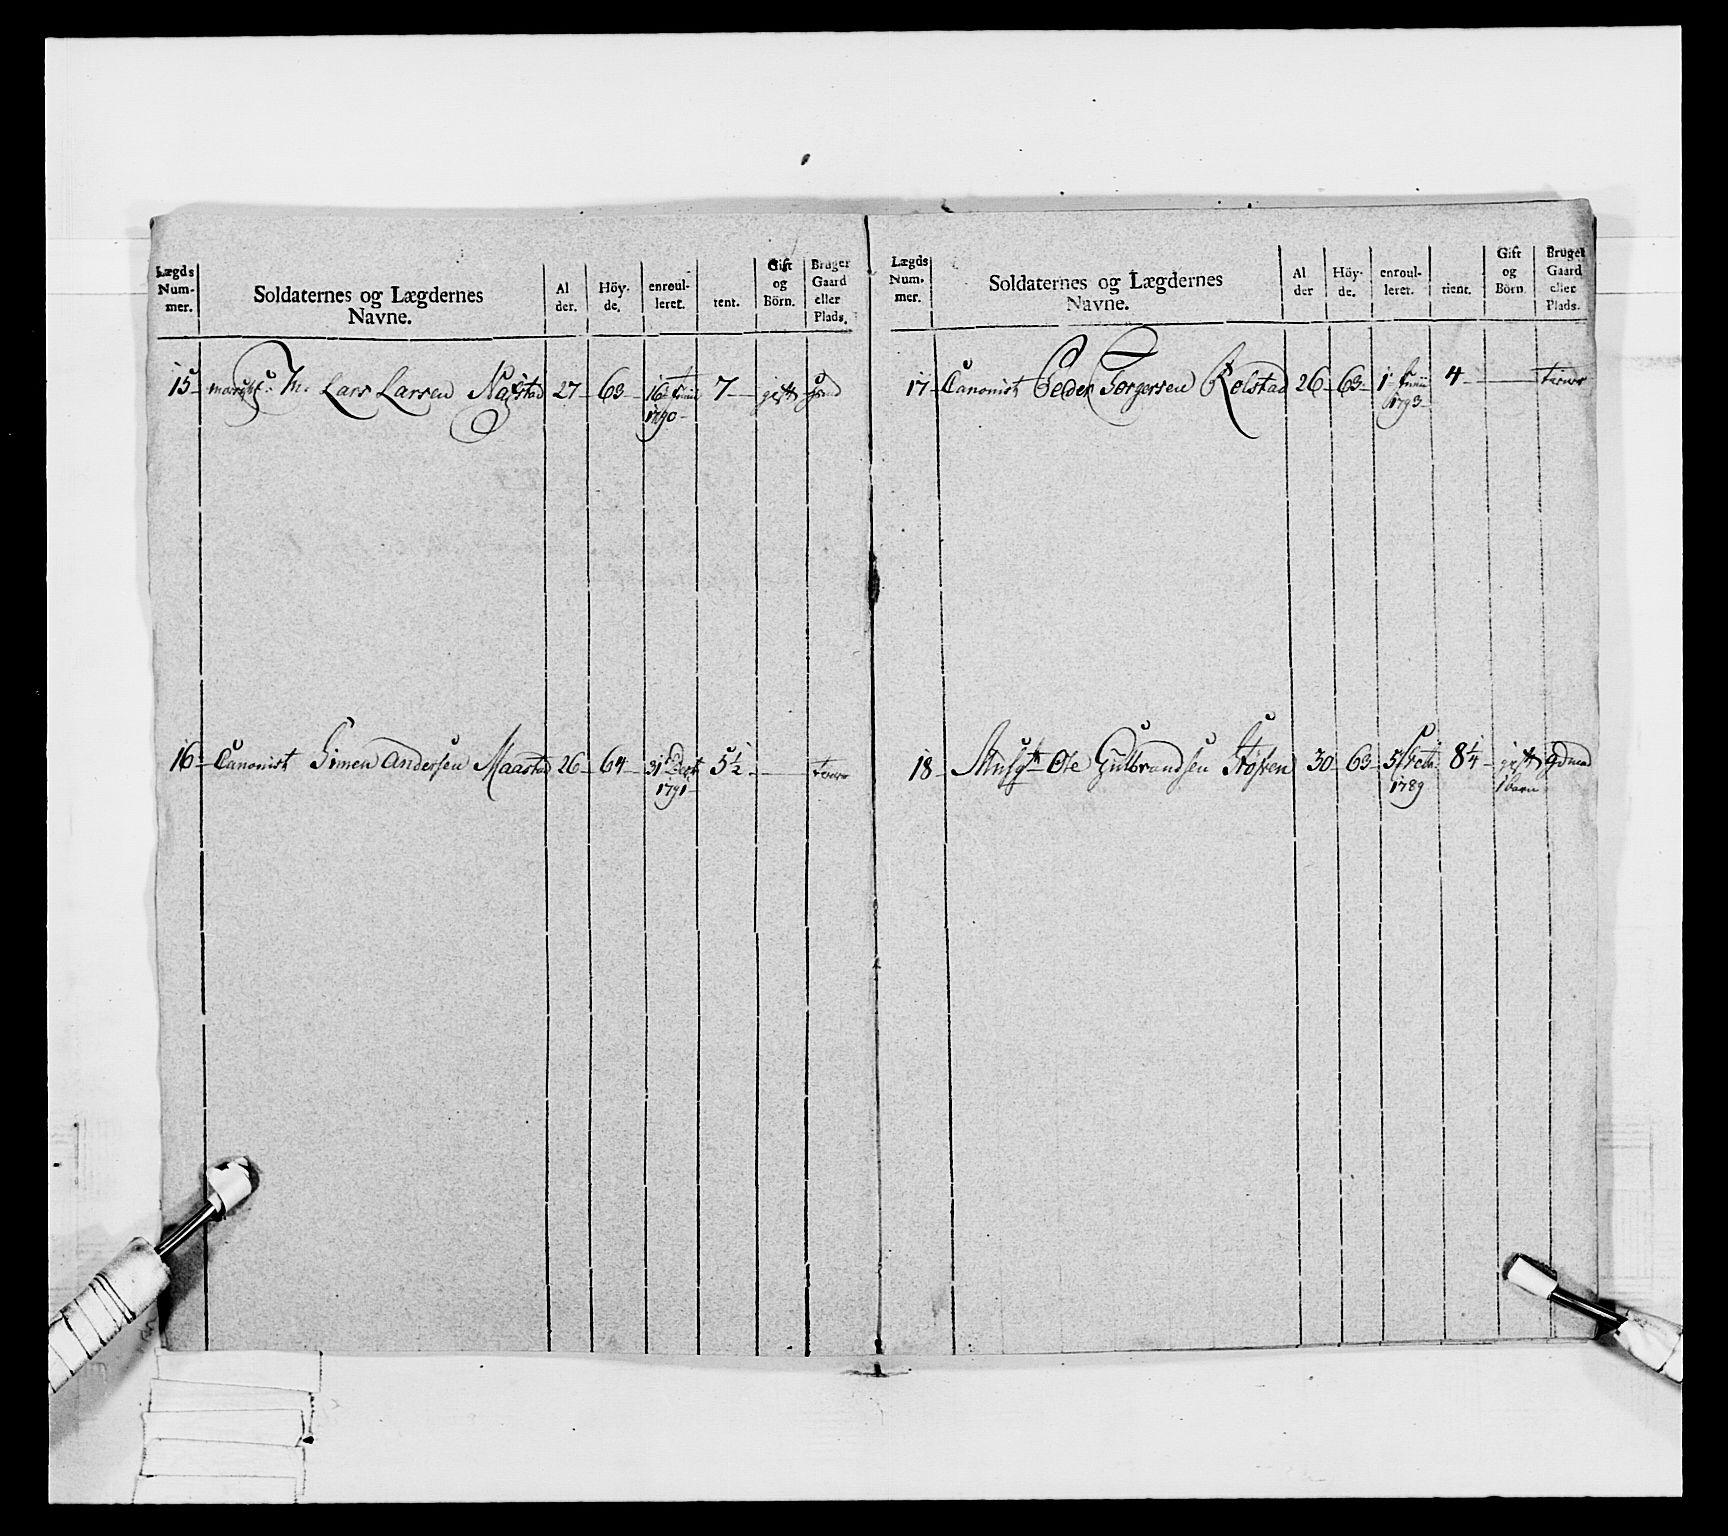 Lægds Num- mer.
Soldaternes og Lægdernes Navne.
Al der.
Höy- de.
enroul- leret.
tent.
Gift og Börn.
Bruger Gaard eller Plads.
15 Lars Larsen 27 63 16 Junii 7 gift
1790
16 Canonist Simen Andersen Maastad 26 64 31 Dec 5 1/2 tiener
1791
Lægds Num- mer.
Soldaternes og Lægdernes Navne.
Al der
Höy- de.
enroul- leret.
tient.
Gift og Börn
Bruger Gaard eller Plads.
17 Canonist Peder Torgersen Rolstad 26 63 1 Junii 4 tiener
1793
18 Musqt Ole Gulbrandsen 30 63 5 Octb 8 1/4 gift gdmand
1789 1 barn